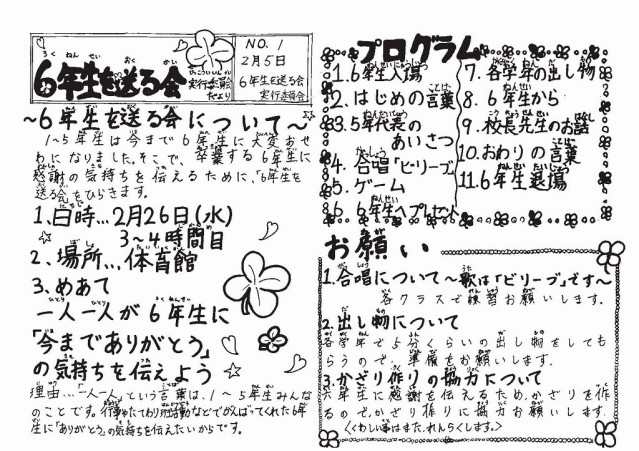 6年生を送る会
実行委員会
だより
NO.1
2月5日
6年生を送る会
実行委員会
~6年生を送る会について~
1~5年生は今まで6年生に大変おせ
わになりました。そこで、卒業する6年生に
感謝の気持ちを伝えるために、「6年生を
送る会」をひらきます。
1.日時…2月26日(水)
3~4時間目
2.場所…体育館
3.めあて
一人一人が6年生に
「今までありがとう」
の気持ちを伝えよう
理由…「一人一人」という言葉は、1~5年生みんな
のことです。行事やたてわり班活動などでがんばってくれた6年
生に「ありがとう。」の気持ちを伝えたいからです。
プログラム
1.6年生入場
2.はじめの言葉
3.5年代表の
あいさつ
4.合唱「ビリーブ」
5.ゲーム
6.6年生へプレゼント
7.各学年の出し物
8.6年生から
9.校長先生のお話
10.おわりの言葉
11.6年生退場
お願い
1.合唱について~歌は「ビリーブ」です~
各クラスで練習お願いします。
2.出し物について
各学年で5分くらいの出し物をしても
らうので、準備をお願いします。
3.かざり作りの協力について
六年生に感謝を伝えるため、かざりを作
るので、かざり作りに協力お願いします。
<くわしい事はまた、れんらくします。>